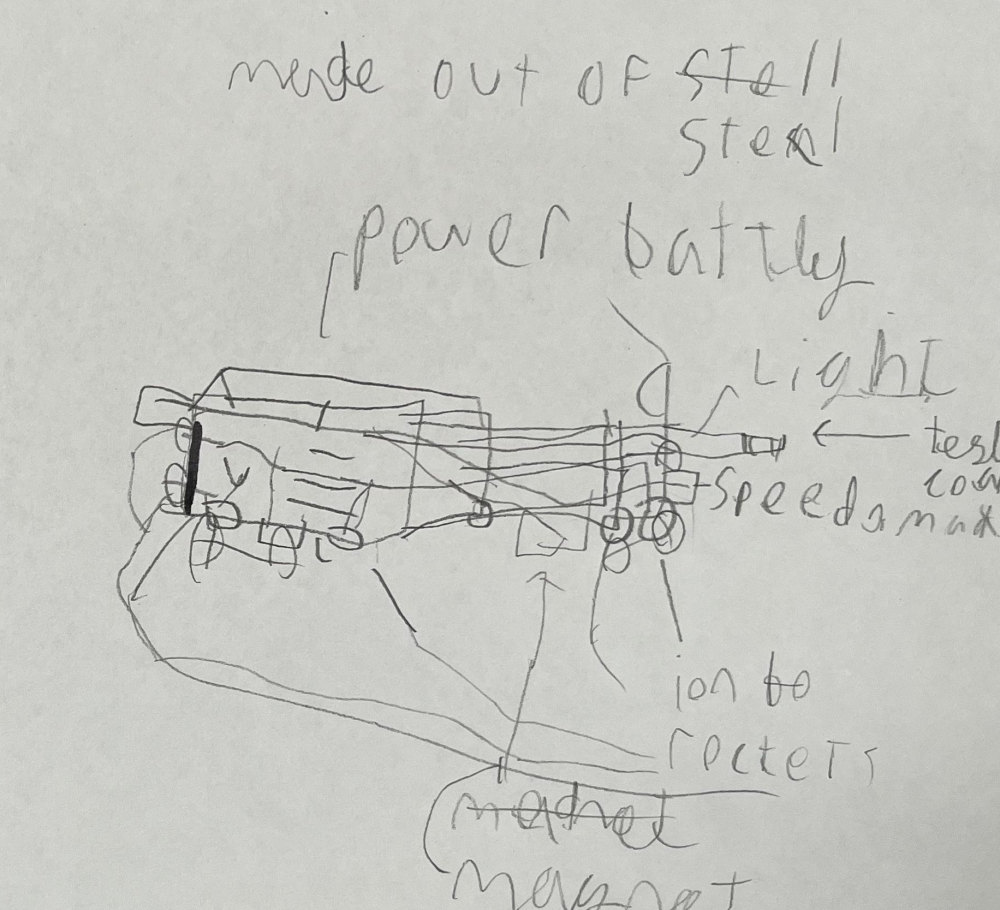 made out of stell
steal
power battly
Light
tesl
coa
speedamax
ion bo
rockets
magnet
magnet